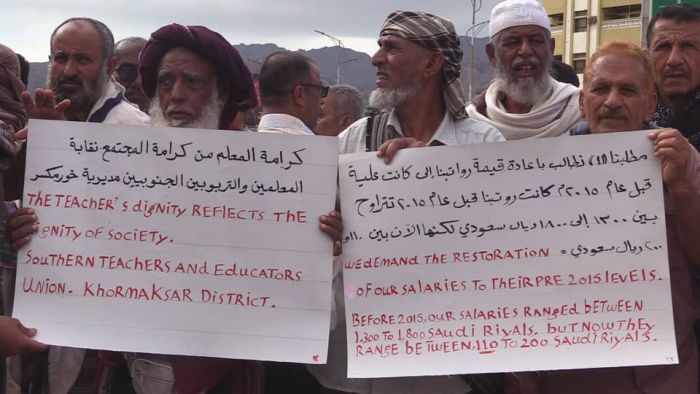 كرامة المعلم من كرامة المجتمع نقابة
المعلمين والتربويين الجنوبيين مديرية خورمكسر
THE TEACHER'S DIGNITY REFLECTS THE
DIGNITY OF SOCIETY.
SOUTHERN TEACHERS AND EDUCATORS
UNION. KHORMAKSAR DISTRICT.
مطلبنا نطالب باعادة قيمة رواتبنا إلى كانت علية
قبل عام ٢٠١٥م كانت روتبنا قبل عام ٢٠١٥ تتراوح
بين ١٣٠٠ إلى ١٨٠٠ ريال سعودي لكنها الآن بين ١١٠ و
٢٠٠ ريال سعودي =
WE DEMAND THE RESTORATION
OF OUR SALARIES TO THEIR PRE 2015 LEVELS.
BEFORE 2015, OUR SALARIES RANGED BETWEEN
1,300 TO 1,800 SAUDI RIYALS. BUT NOW THEY
RANGE BETWEEN, 110 TO 200 SAUDI RIYALS.